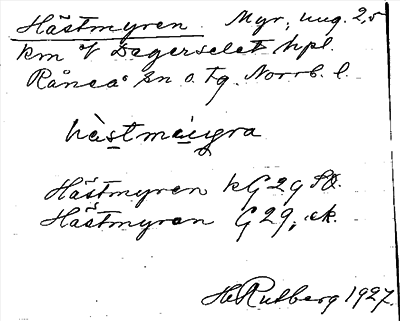 Hästmyren. Myr, ung. 2,5
km V Degerselet hpl.
Råneå sn o. tg. Norrb. l.
hästmäuyra
Hästmyren kG29 SO.
Hästmyran G29, ek.
H. Rutberg 1927.